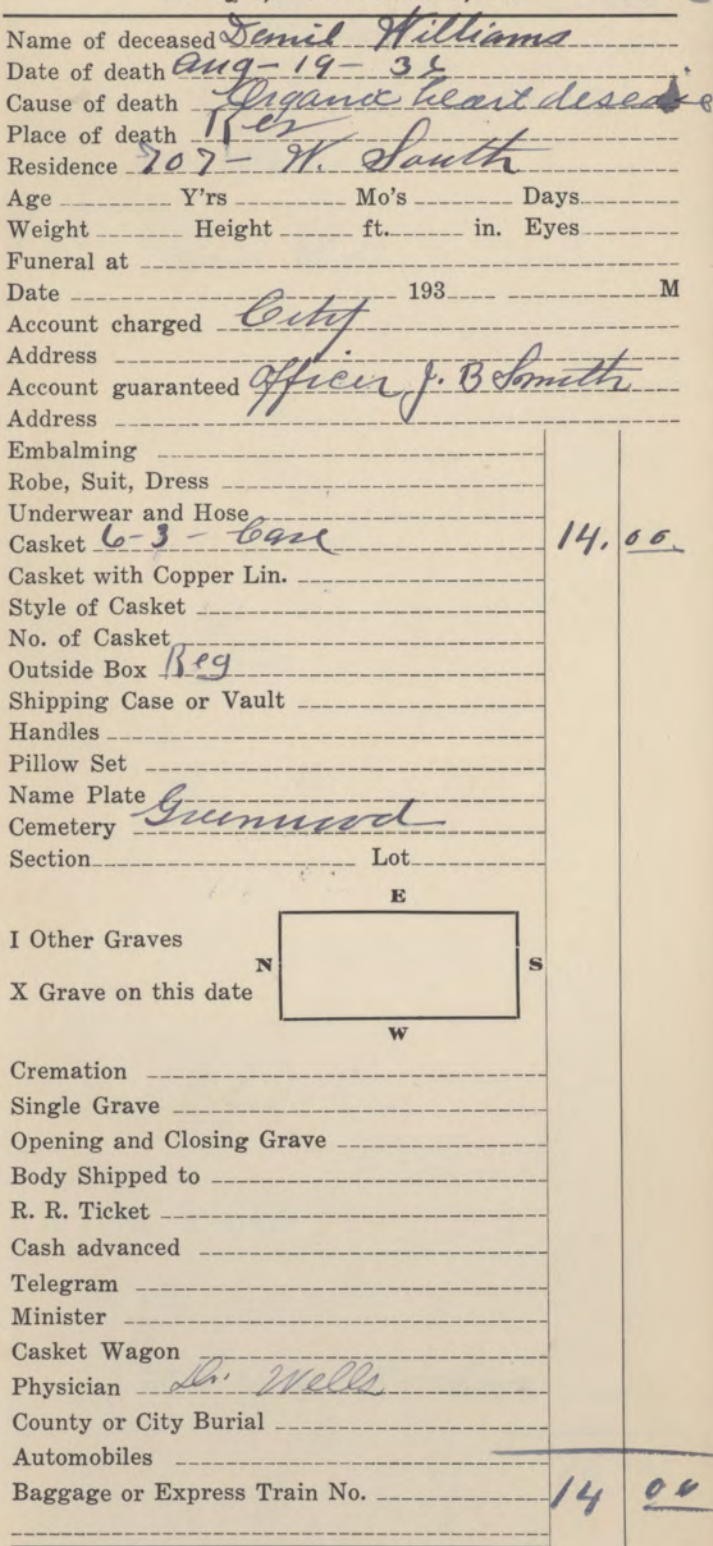 Name of deceased Demil Williams
Date of death Aug-19-32
Cause of death Organic heart desease
Place of death Res
Residence 707- W. South
Age Y'rs Mo's Days
Weight Height ft. in. Eyes
Funeral at
Date 193 M
Account charged City
Address
Account guaranteed Officer J. B Smith
Address
Embalming
Robe, Suit, Dress
Underwear and Hose
Casket 6-3 - Case 14.00
Casket with Copper Lin.
Style of Casket
No. of Casket
Outside Box Reg
Shipping Case or Vault
Handles
Pillow Set
Name Plate
Cemetery Greenwood
Section Lot
E
I Other Graves
N S
X Grave on this date
W
Cremation
Single Grave
Opening and Closing Grave
Body Shipped to
R. R. Ticket
Cash advanced
Telegram
Minister
Casket Wagon
Physician Dr. Wells
County or City Burial
Automobiles
Baggage or Express Train No. 14 00